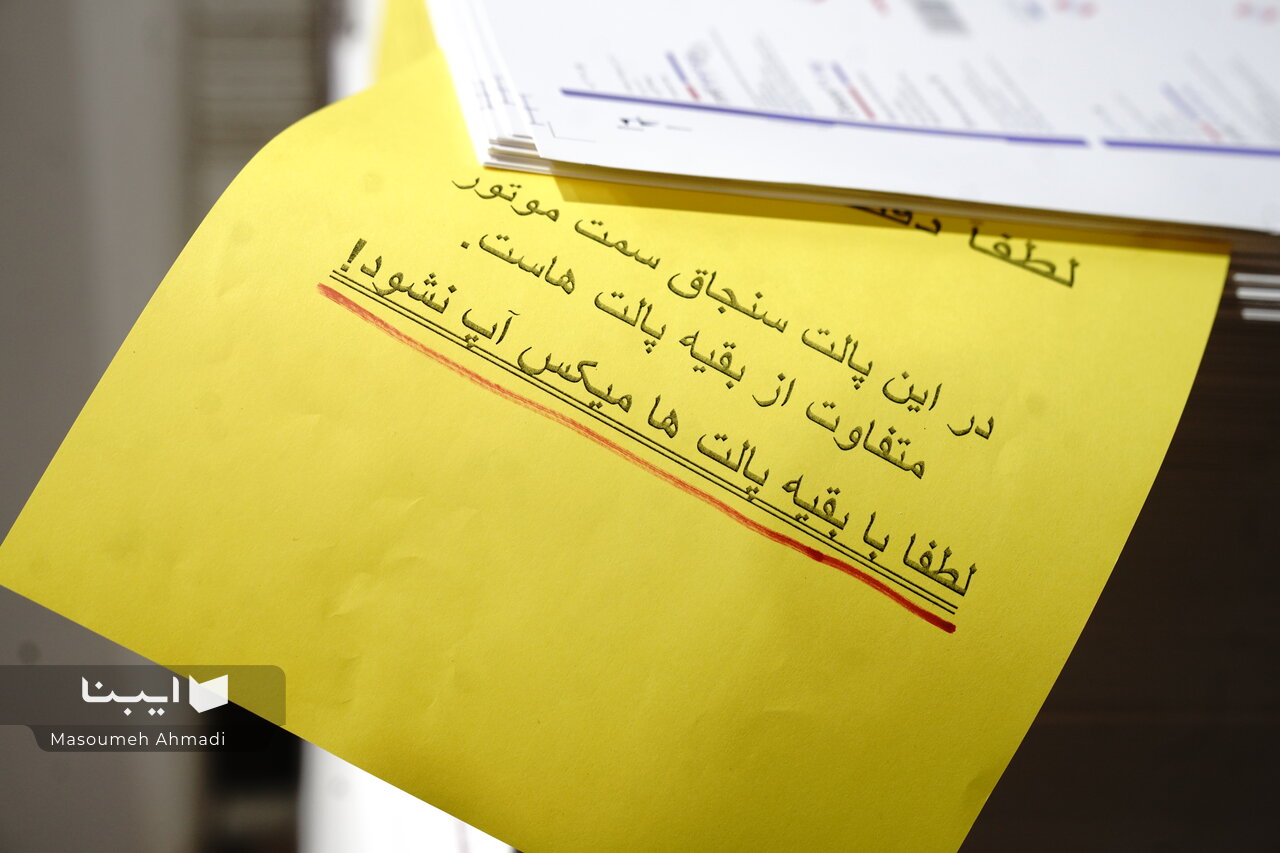 لطفا
در این پالت سنجاق سمت موتور
متفاوت از بقیه پالت هاست.
لطفا با بقیه پالت ها میکس آپ نشود!
ایبنا
Masoumeh Ahmadi